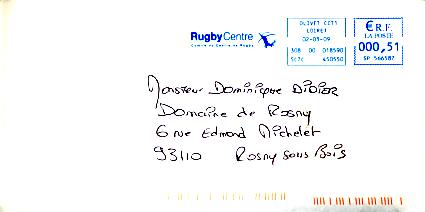 RugbyCentre
Comité du Centre de Rugby
OLIVET CDIS
LOIRET
02-03-09
308 00 018590
5C7C 450550
€R.F.
LA POSTE
000,51
SP 566587
Monsieur Dominique DIDIER
Domaine de Rosny
6 rue Edmond Michelet
93110 Rosny sous Bois